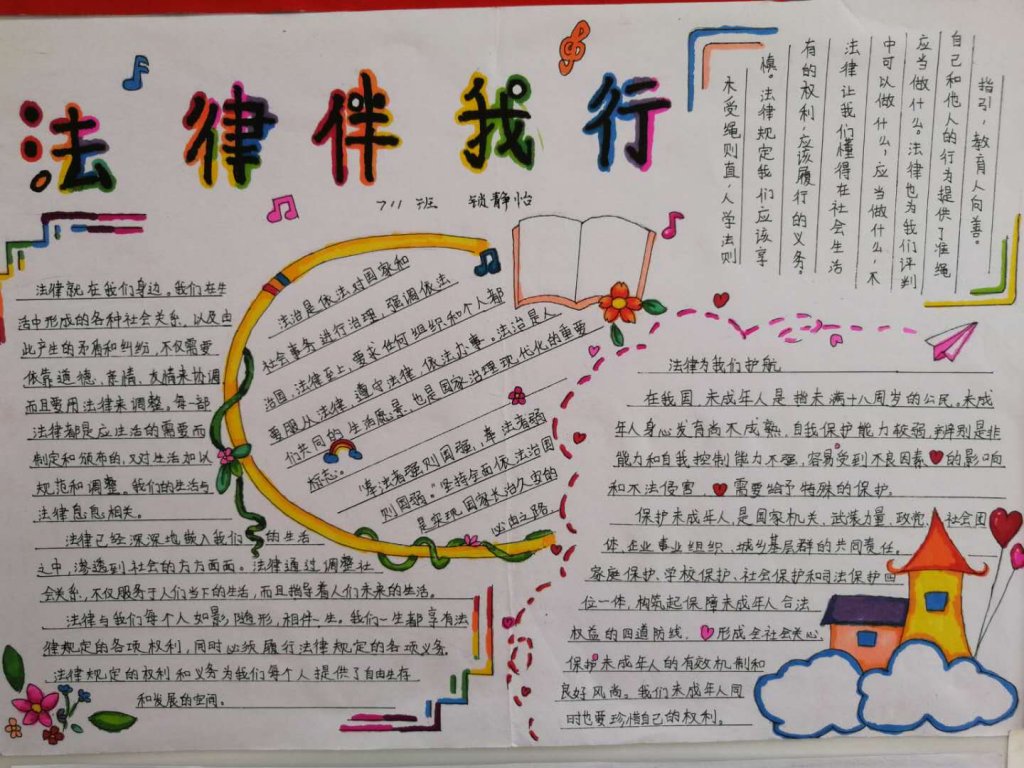 法律伴我行
711班 锁静怡
木受绳则直，人学法则
慎。法律规定我们应该享
有的权利，应该履行的义务。
法律让我们懂得在社会生活
中可以做什么，应当做什么，不
应当做什么。法律也为我们评判
自己和他人的行为提供了准绳
指引，教育人向善。
法律就在我们身边。我们在生
活中形成的各种社会关系，以及由
此产生的矛盾和纠纷，不仅需要
依靠道德，亲情、友情来协调
而且要用法律来调整。每一部
法律都是应生活的需要而
制定和颁布的，又对生活加以
规范和调整。我们的生活与
法律息息相关。
法律已经深深地嵌入我们的生活
之中，渗透到社会的方方面面。法律通过调整社
会关系，不仅服务于人们当下的生活，而且指导着人们未来的生活。
法律与我们每个人如影随形，相伴一生。我们一生都享有法
律规定的各项权利，同时必须履行法律规定的各项义务
法律规定的权利和义务为我们每个人提供了自由生存
和发展的空间。
法治是依法对国家和
社会事务进行治理，强调依法
治国，法律至上，要求任何组织和个人都
要服从法律，遵守法律，依法办事。法治是人
们共同的生活愿景，也是国家治理现代化的重要
标志。
"奉法者强则国强，奉法者弱
则国弱。"坚持全面依法治国
是实现国家长治久安的
必由之路
法律为我们护航
在我国，未成年人是指未满十八周岁的公民。未成
年人身心发育尚不成熟，自我保护能力较弱，辨别是非
能力和自我控制能力不强，容易受到不良因素的影响
和不法侵害，需要给予特殊的保护。
保护未成年人，是国家机关、武装力量、政党、社会团
体、企业事业组织、城乡基层群的共同责任。
家庭保护、学校保护、社会保护和司法保护四
位一体，构筑起保障未成年人合法
权益的四道防线，形成全社会关心
保护未成年人的有效机制和
良好风尚。我们未成年人同
时也要珍惜自己的权利。